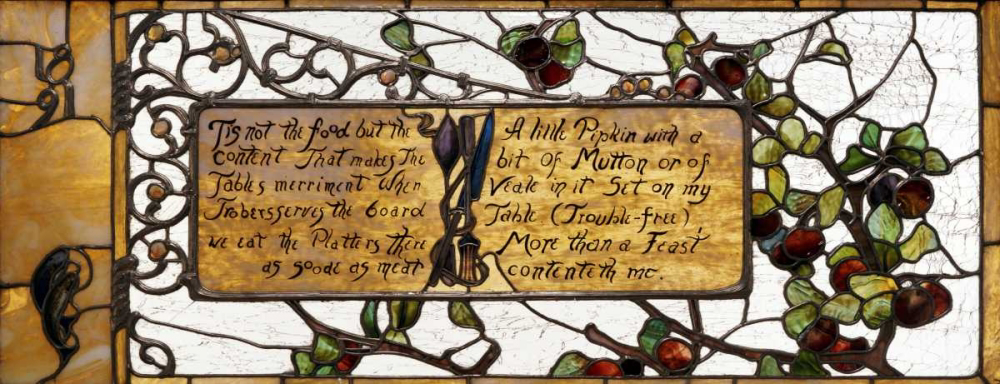 Tis not the food but the
content That makes The
Tables merriment When
Trobersserves the board
we eat the Platters there
as soode as meat
A little Pipkin with a
bit of Mutton or of
Veale in it Set on my
Table (Trouble-free)
More than a Feast
contenteth me.